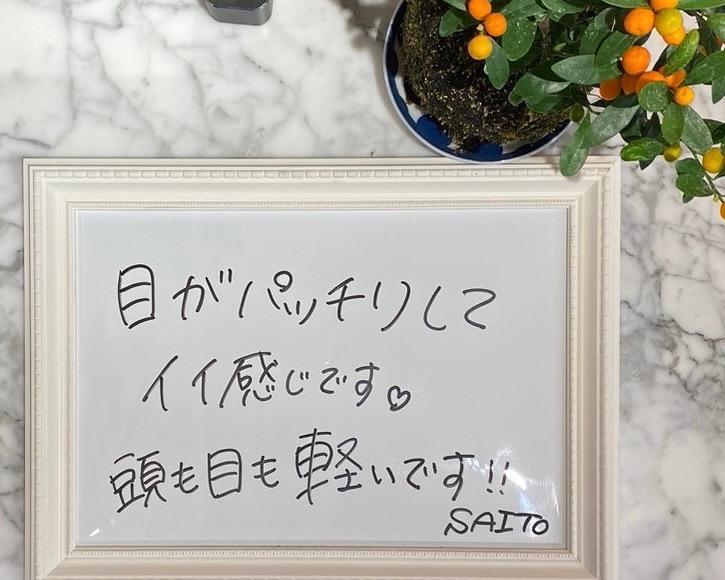 目がパッチリして
イイ感じです♡
頭も目も軽いです!!
SAITO